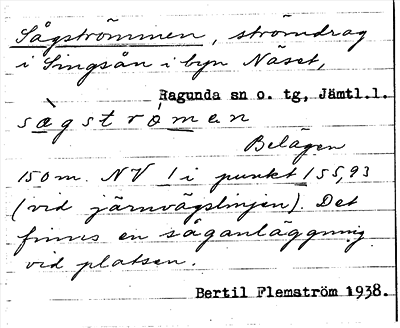 Sågströmmen, strömdrag
i Singsån i byn Näset,
Ragunda sn o. tg, Jämtl.l.
sæ̀gströ́men
Belägen
150 m. NV 1 i punkt 155,93
(vid järnvägslinjen). Det
finnes en såganläggning
vid platsen.
Bertil Flemström 1938.